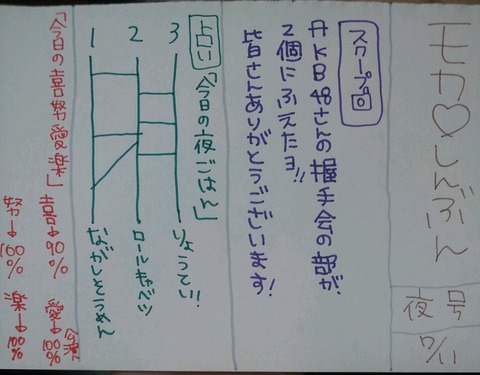 モカ♡しんぶん
夜号
7/11
スクープ回
AKB48さんの握手会の部が、
2個にふえたヨ!!
皆さんありがとうございます!
占い「今日の夜ごはん」
3 りょうてい!
2 ロールキャベツ
1 ながしそうめん
「今日の喜努愛楽」
喜→90%
努→100%
愛→100%
楽→100%